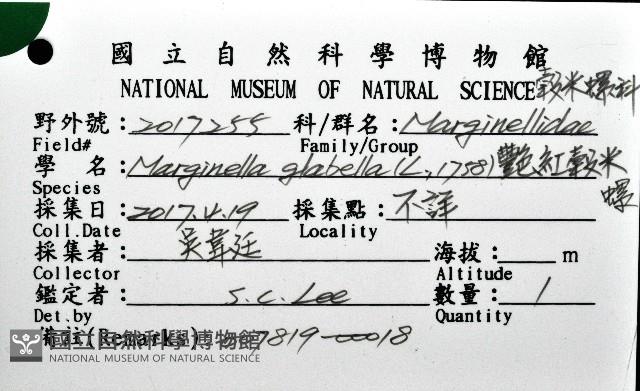 國立自然科學博物館
NATIONAL MUSEUM OF NATURAL SCIENCE 穀米螺科
野外號：2017255 科/群名：Marginellidae
Field# Family/Group
學 名：Marginella glabella (L, 1758) 艷紅穀米螺
Species
採集日：2017.4.19 採集點：不詳
Coll.Date Locality
採集者：吳韋廷 海拔：m
Collector Altitude
鑑定者：S.C. Lee 數量：1
Det.by Quantity
備註(Remarks) 7819-00018
國立自然科學博物館
NATIONAL MUSEUM OF NATURAL SCIENCE